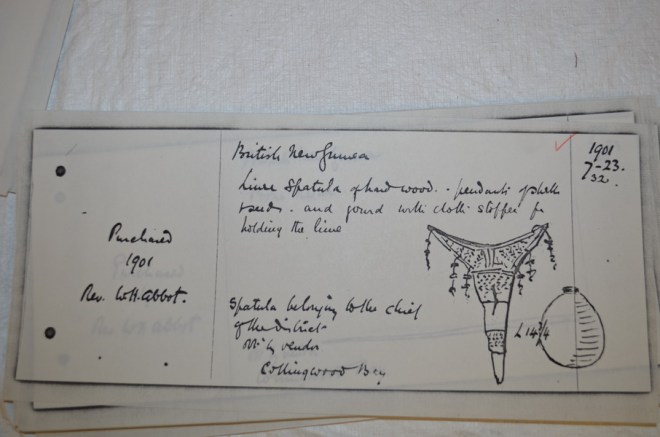 British New Guinea
Lime Spatula of hard wood. - pendants of shells
& seeds - and gourd with cloth stopper for
holding the lime
1901
7-23.
32.
Purchased
1901
Rev. W.H. Abbot.
Spatula belonging to the chief
of the District
by vendor
Collingwood Bay
L 14 3/4